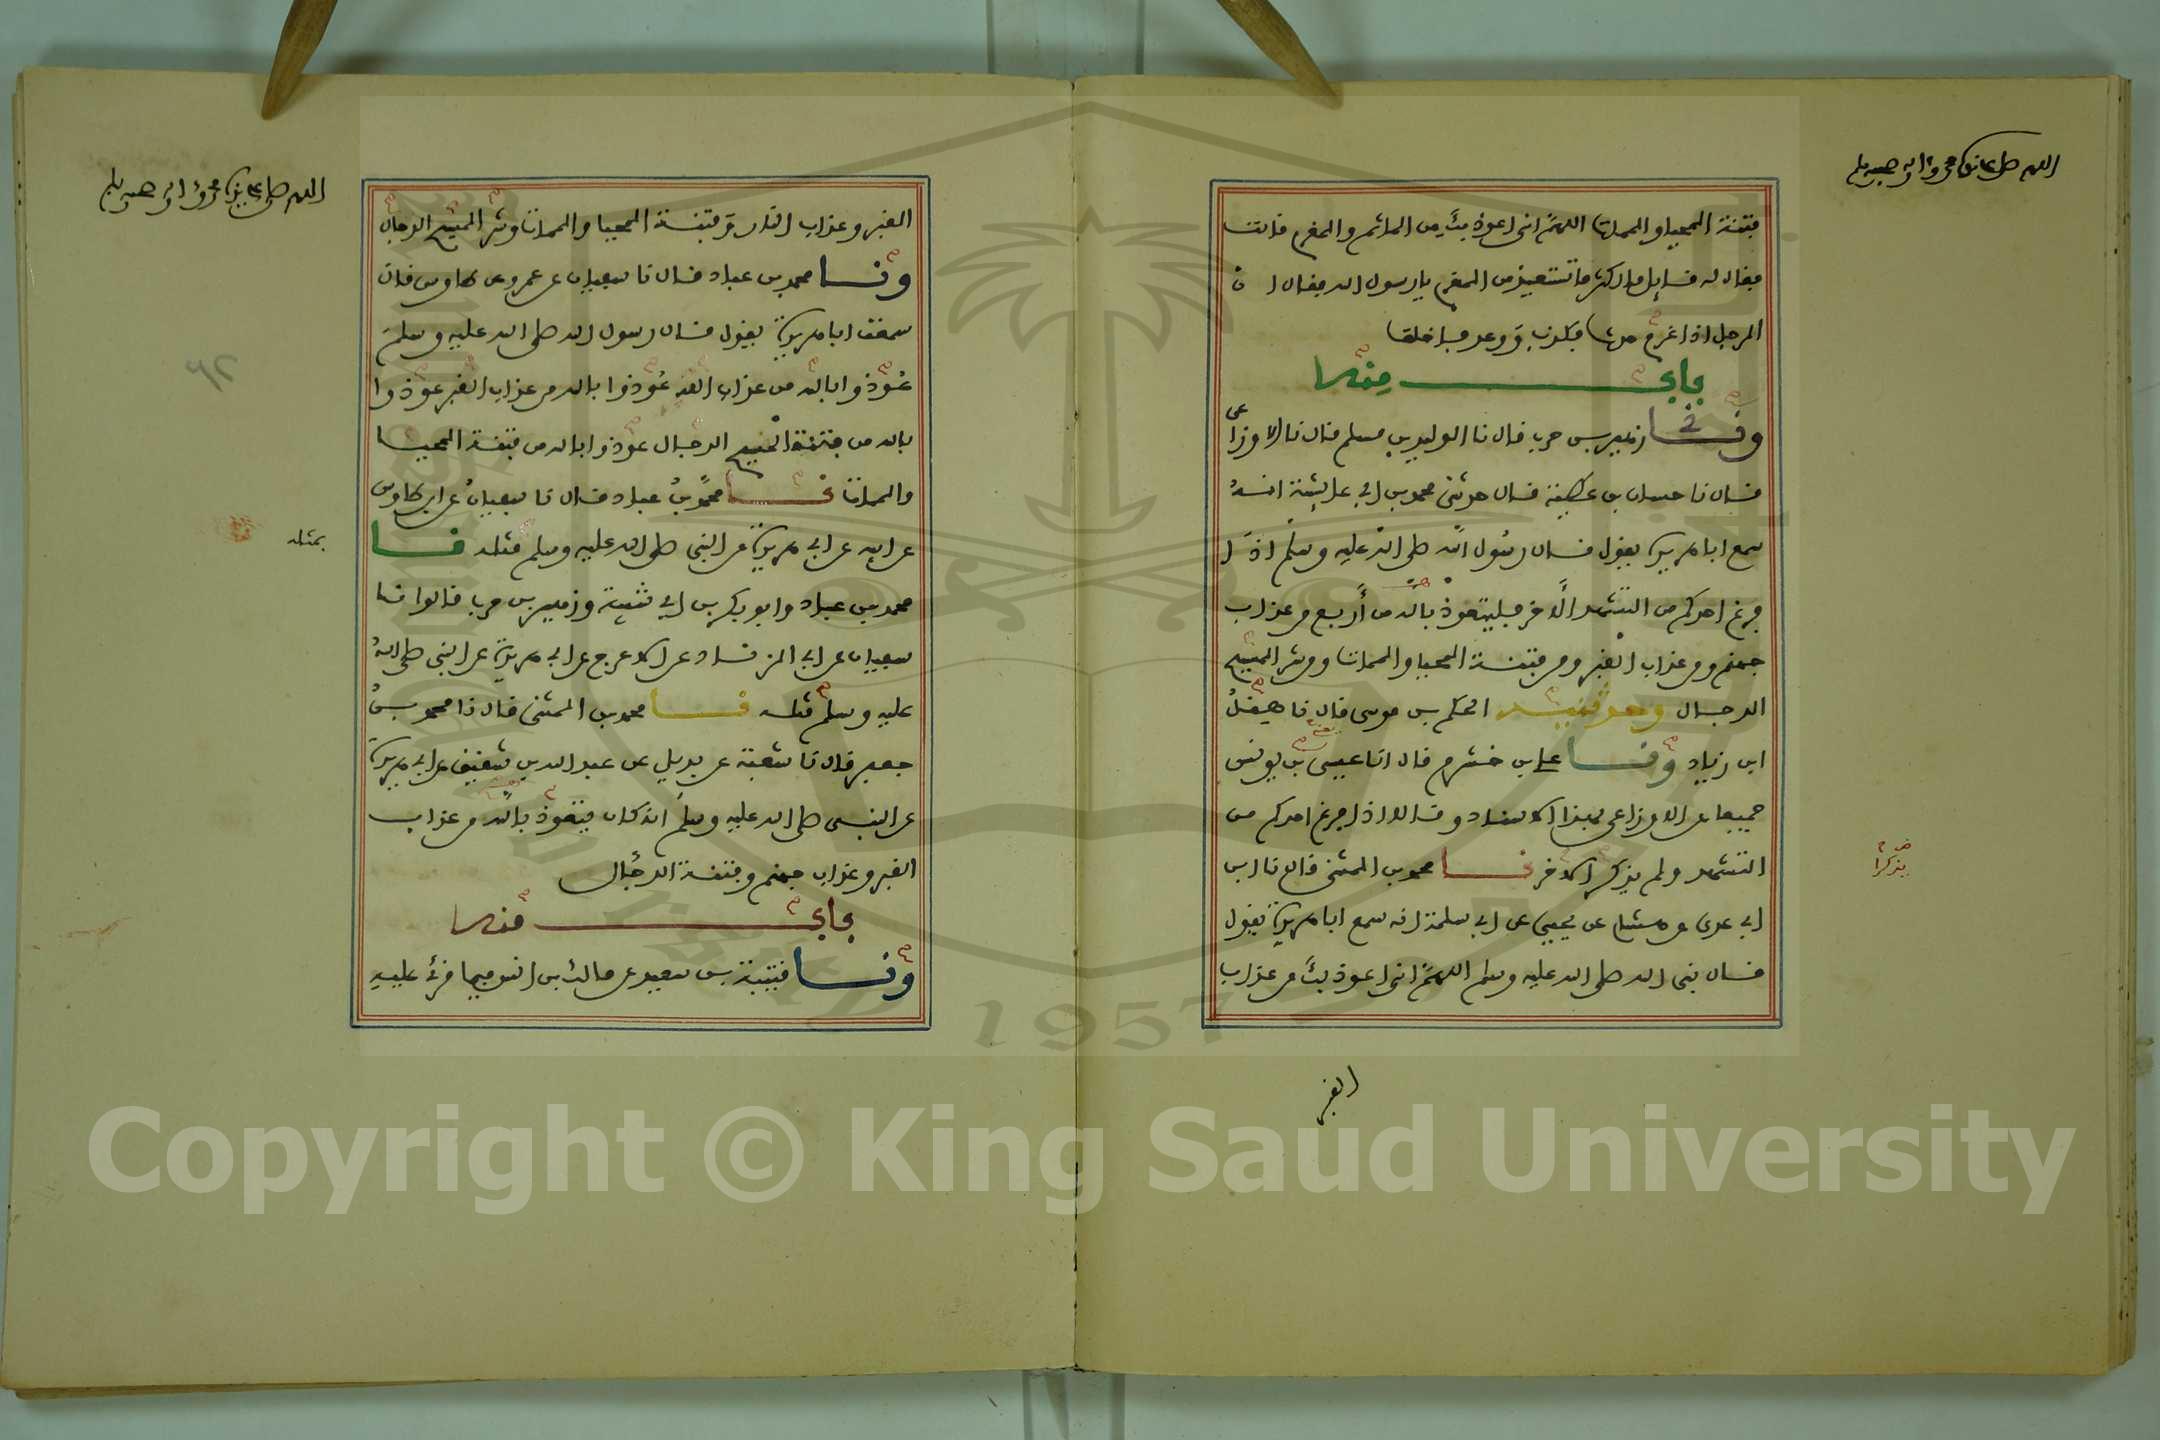 اللهم صل على نبيك محمد وآله وصحبه وسلم
فتنة المحيا والممات اللهم انى اعوذ بك من الماثم والمغرم قالت
فقال له قايل ما اكثر ما تستعيذ من المغرم يا رسول الله فقال ا ن
الرجل اذا غرم حدث فكذب ووعد فاخلف
باب منه
ونا زهير بن حرب قال نا الوليد بن مسلم قال نا الاوزاعى
قال نا حسان بن عطية قال حدثنى محمد بن ابى عايشة انه
سمع ابا هريرة يقول قال رسول الله صلى الله عليه وسلم اذا
فرغ احدكم من التشهد الاخر فليتعوذ بالله من أربع من عذاب
جهنم ومن عذاب القبر ومن فتنة المحيا والممات ومن شر المسيح
الدجال وحدثنيه الحكم بن موسى قال نا هقل
ابن زياد ونا على بن خشرم قال انا عيسى بن يونس
جميعا عن الاوزاعى بهذا الاسناد وقالا اذا فرغ احدكم من
التشهد ولم يذكر الاخر نا محمد بن المثنى قال نا ابن
يذكرا
ابى عدى عن هشام عن يحيى عن ابى سلمة انه سمع ابا هريرة يقول
قال نبى الله صلى الله عليه وسلم اللهم انى اعوذ بك من عذاب
القبر
اللهم صل على نبيك محمد وآله وصحبه وسلم
القبر وعذاب النار وفتنة المحيا والممات وشر المسيح الدجال
ونا محمد بن عباد قال نا سفيان عن عمرو عن طاوس قال
سمعت ابا هريرة يقول قال رسول الله صلى الله عليه وسلم
عوذوا بالله من عذاب الله عوذوا بالله من عذاب القبر عوذوا
بالله من فتنة المسيح الدجال عوذوا بالله من فتنة المحيا
والممات نا محمد بن عباد قال نا سفيان عن ابن طاوس
عن ابيه عن ابى هريرة عن النبى صلى الله عليه وسلم مثله نا
بمثله
محمد بن عباد وابو بكر بن ابى شيبة وزهير بن حرب قالوا نا
سفيان عن ابى الزناد عن الاعرج عن ابى هريرة عن النبى صلى الله
عليه وسلم مثله نا محمد بن المثنى قال نا محمد بن
جعفر قال نا شعبة عن بديل عن عبد الله بن شقيق عن ابى هريرة
عن النبى صلى الله عليه وسلم انه كان يتعوذ بالله من عذاب
القبر وعذاب جهنم وفتنة الدجال
باب منه
ونا قتيبة بن سعيد عن مالك بن انس فيما قرئ عليه
٩٢
1957
Copyright © King Saud University